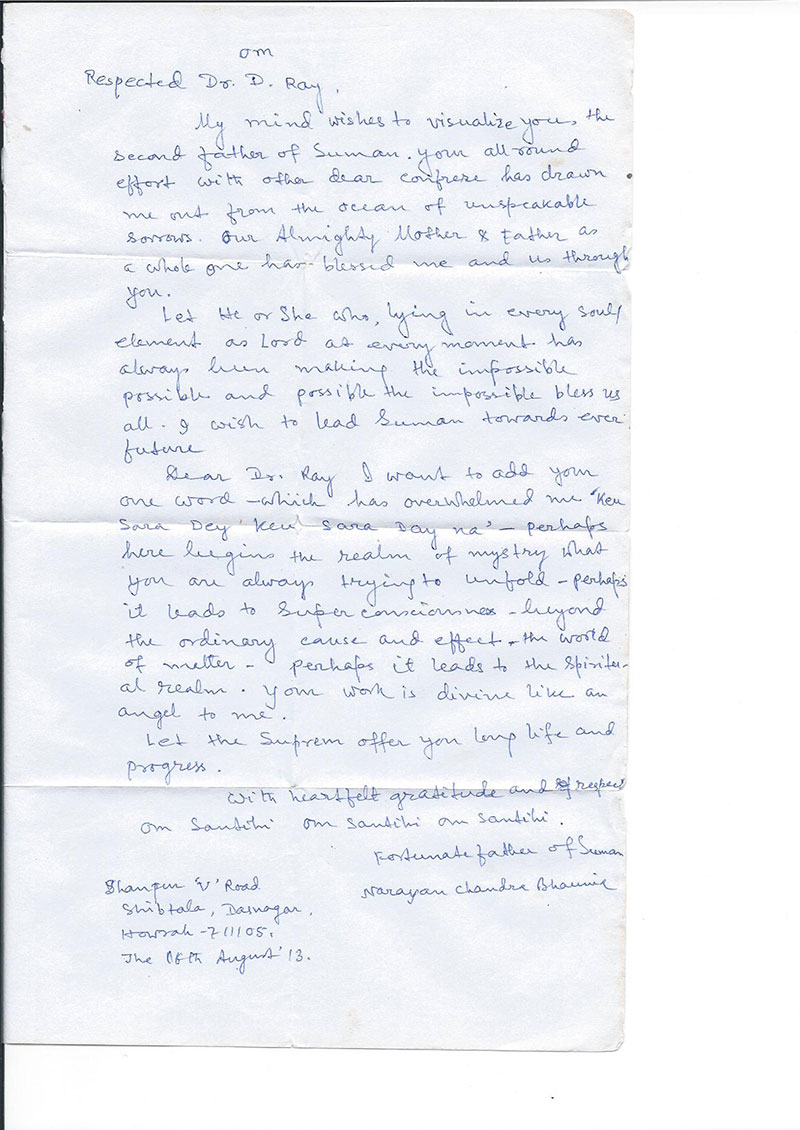 om
Respected Dr. D. Ray,
My mind wishes to visualize you, the
second father of Suman. Your all round
effort with other dear confrere has drawn
me out from the ocean of unspeakable
sorrows. Our Almighty Mother & Father as
a whole one has blessed me and us through
you.
Let He or She who, lying in every soul/
element as Lord at every moment has
always been making the impossible
possible and possible the impossible bless us
all. I wish to lead Suman towards ever
future
Dear Dr. Ray I want to add your
one word - which has overwhelmed me 'Keu
Sara Dey' Keu Sara Day na' - perhaps
here begins the realm of mystry what
you are always trying to unfold - perhaps
it leads to Super consciousnes - beyond
the ordinary cause and effect - the world
of metter - perhaps it leads to the Spiritu-
al realm. Your work is divine like an
angel to me.
Let the Suprem offer you long life and
progress.
With heartfelt gratitude and respect
om Santihi om Santihi om Santihi.
Fortunate father of Suman
Narayan Chandra Bhaumik
'U' Road
Shibtala, Dasnagar,
Howrah - 711105.
The 06th August '13.